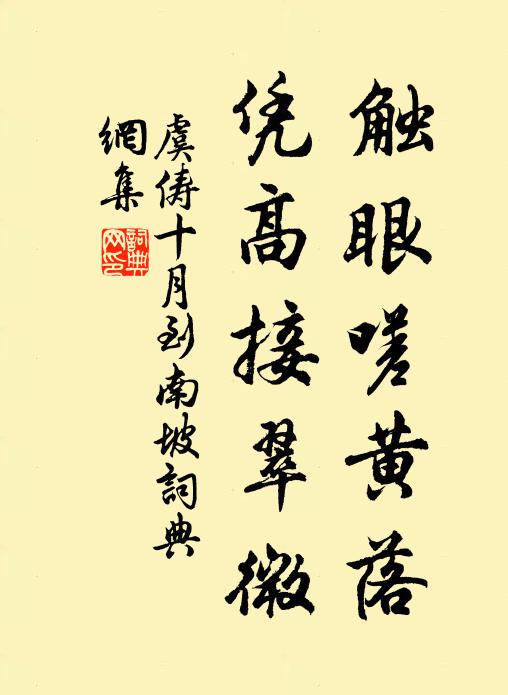 触眼嗟黄落
凭高接翠微
虞俦十月到南坡詞典
網集
詞典
网印